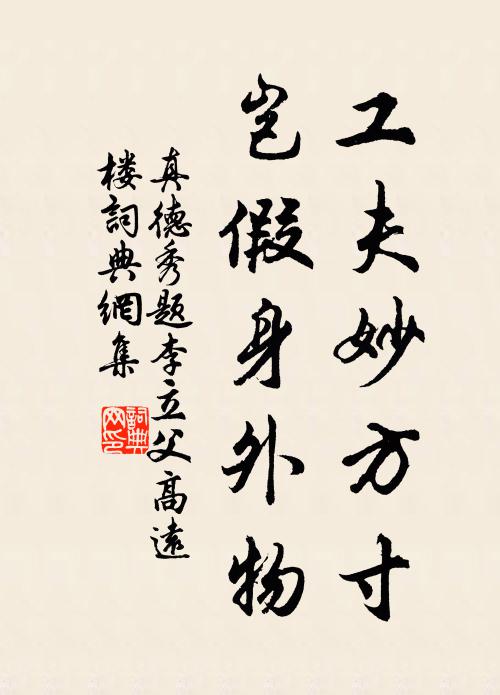 工夫妙方寸
岂假身外物
真德秀题李立父高遠
楼詞典網集
詞典
网印